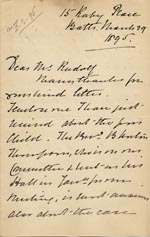 15 Raby Place
Bath. March 29
1895.
Dear Mr. Rudolf
Many thanks for
your kind letter.
one than just
mind about the poor
Child. The Revd.
Thompson, who is on our
Committee & lent us his
Hall in Jany for our
Meeting, is most anxious
also about the case